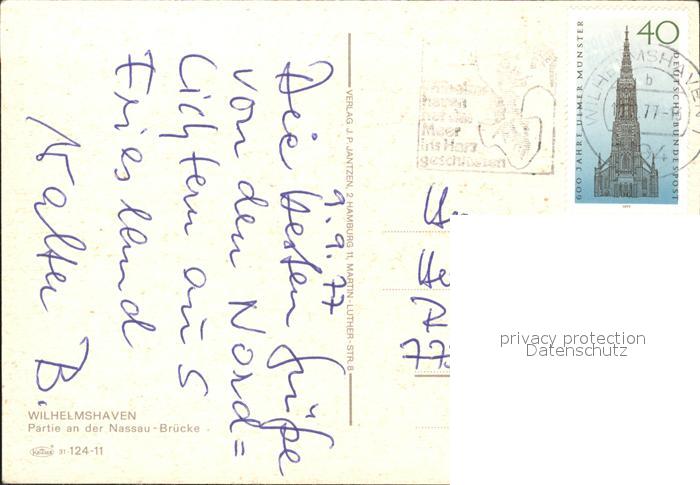 9.9.77
Die besten Grüße
von den Nord=
lichtern aus
Friesland
Walter B.
WILHELMSHAVEN
Partie an der Nassau-Brücke
KRÜGER 31·124-11
VERLAG J. P. JANTZEN, 2 HAMBURG 11, MARTIN-LUTHER-STR. 8
haven
Meer
ins Herz
geschlossen
600 JAHRE ULMER MÜNSTER
40
DEUTSCHE BUNDESPOST
1977
WILHELMSHAVEN
b
77-1
privacy protection
Datenschutz